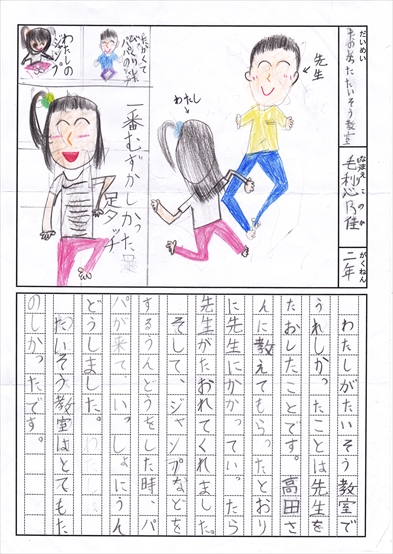 だいめい
たいそう教室
なまえ
毛利心乃佳
こ の か
がくねん
二年
先生
わたし
一番むずかしかった
足タッチ
わたしの
ジャンプ
わたしがたいそう教室で
うれしかったことは先生を
たおしたことです。高田さ
んに教えてもらったとおり
に先生にかかっていったら
先生がたおれてくれました。
そして、ジャンプなどを
するうんどうをした時、パ
パが来て、いっしょにうん
どうしました。
たいそう教室はとてもた
のしかったです。